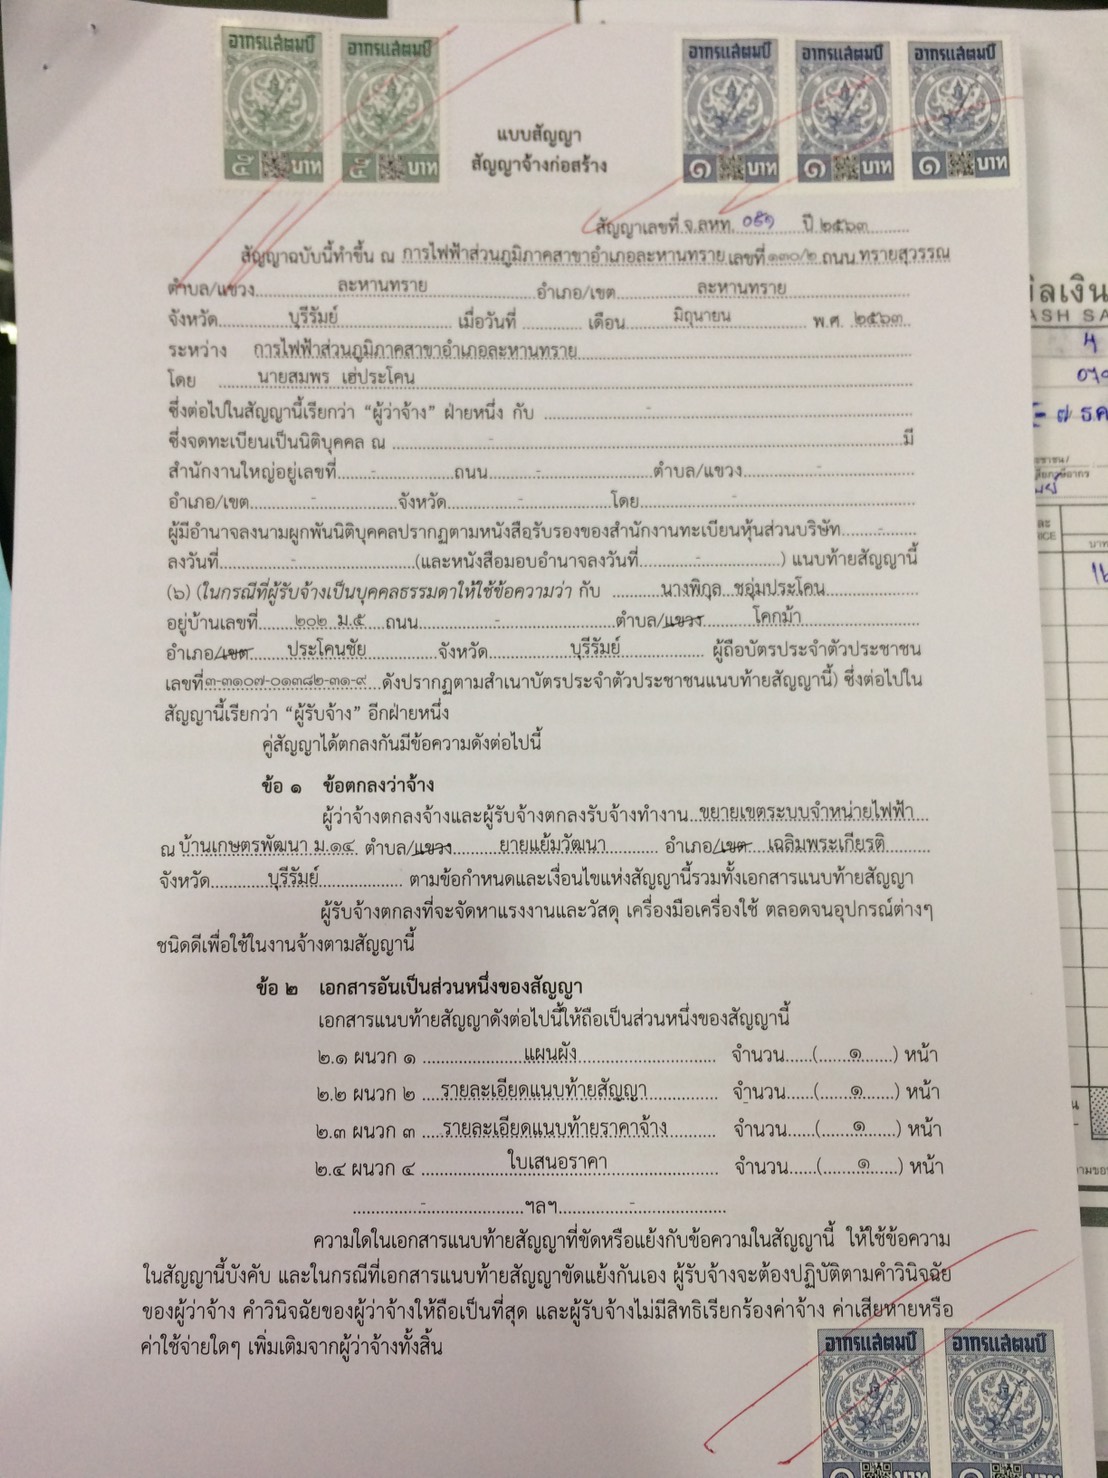 อากรแสตมป์ อากรแสตมป์ อากรแสตมป์ อากรแสตมป์ อากรแสตมป์
๕ บาท ๕ บาท ๑ บาท ๑ บาท ๑ บาท
แบบสัญญา
สัญญาจ้างก่อสร้าง
สัญญาเลขที่ จ.ลหท. ปี ๒๕๖๓
สัญญาฉบับนี้ทำขึ้น ณ การไฟฟ้าส่วนภูมิภาคสาขาอำเภอละหานทราย เลขที่ ๑๓๐/๒ ถนน ทรายสุวรรณ
ตำบล/แขวง ละหานทราย อำเภอ/เขต ละหานทราย
จังหวัด บุรีรัมย์ เมื่อวันที่ ............ เดือน มิถุนายน พ.ศ. ๒๕๖๓
ระหว่าง การไฟฟ้าส่วนภูมิภาคสาขาอำเภอละหานทราย
โดย นายสมพร เฮ่ประโคน
ซึ่งต่อไปในสัญญานี้เรียกว่า “ผู้ว่าจ้าง” ฝ่ายหนึ่ง กับ -
ซึ่งจดทะเบียนเป็นนิติบุคคล ณ - มี
สำนักงานใหญ่อยู่เลขที่ - ถนน - ตำบล/แขวง -
อำเภอ/เขต - จังหวัด - โดย -
ผู้มีอำนาจลงนามผูกพันนิติบุคคลปรากฏตามหนังสือรับรองของสำนักงานทะเบียนหุ้นส่วนบริษัท -
ลงวันที่ - (และหนังสือมอบอำนาจลงวันที่ - ) แนบท้ายสัญญานี้
(๖) (ในกรณีที่ผู้รับจ้างเป็นบุคคลธรรมดาให้ใช้ข้อความว่า กับ นางพิกุล ชอุ่มประโคน
อยู่บ้านเลขที่ ๒๐๒ ม.๕ ถนน - ตำบล/แขวง โคกม้า
อำเภอ/เขต ประโคนชัย จังหวัด บุรีรัมย์ ผู้ถือบัตรประจำตัวประชาชน
เลขที่ ๓-๓๑๐๗-๐๑๓๘๒-๓๑-๙ ดังปรากฏตามสำเนาบัตรประจำตัวประชาชนแนบท้ายสัญญานี้) ซึ่งต่อไปใน
สัญญานี้เรียกว่า “ผู้รับจ้าง” อีกฝ่ายหนึ่ง
คู่สัญญาได้ตกลงกันมีข้อความดังต่อไปนี้
ข้อ ๑ ข้อตกลงว่าจ้าง
ผู้ว่าจ้างตกลงจ้างและผู้รับจ้างตกลงรับจ้างทำงาน ขยายเขตระบบจำหน่ายไฟฟ้า
ณ บ้านเกษตรพัฒนา ม.๑๔ ตำบล/แขวง ยายแย้มวัฒนา อำเภอ/เขต เฉลิมพระเกียรติ
จังหวัด บุรีรัมย์ ตามข้อกำหนดและเงื่อนไขแห่งสัญญานี้รวมทั้งเอกสารแนบท้ายสัญญา
ผู้รับจ้างตกลงที่จะจัดหาแรงงานและวัสดุ เครื่องมือเครื่องใช้ ตลอดจนอุปกรณ์ต่างๆ
ชนิดดีเพื่อใช้ในงานจ้างตามสัญญานี้
ข้อ ๒ เอกสารอันเป็นส่วนหนึ่งของสัญญา
เอกสารแนบท้ายสัญญาดังต่อไปนี้ให้ถือเป็นส่วนหนึ่งของสัญญานี้
๒.๑ ผนวก ๑ แผนผัง จำนวน (๑) หน้า
๒.๒ ผนวก ๒ รายละเอียดแนบท้ายสัญญา จำนวน (๑) หน้า
๒.๓ ผนวก ๓ รายละเอียดแนบท้ายราคาจ้าง จำนวน (๑) หน้า
๒.๔ ผนวก ๔ ใบเสนอราคา จำนวน (๑) หน้า
- ฯลฯ -
ความใดในเอกสารแนบท้ายสัญญาที่ขัดหรือแย้งกับข้อความในสัญญานี้ ให้ใช้ข้อความ
ในสัญญานี้บังคับ และในกรณีที่เอกสารแนบท้ายสัญญาขัดแย้งกันเอง ผู้รับจ้างจะต้องปฏิบัติตามคำวินิจฉัย
ของผู้ว่าจ้าง คำวินิจฉัยของผู้ว่าจ้างให้ถือเป็นที่สุด และผู้รับจ้างไม่มีสิทธิเรียกร้องค่าจ้าง ค่าเสียหายหรือ
ค่าใช้จ่ายใดๆ เพิ่มเติมจากผู้ว่าจ้างทั้งสิ้น
อากรแสตมป์ อากรแสตมป์